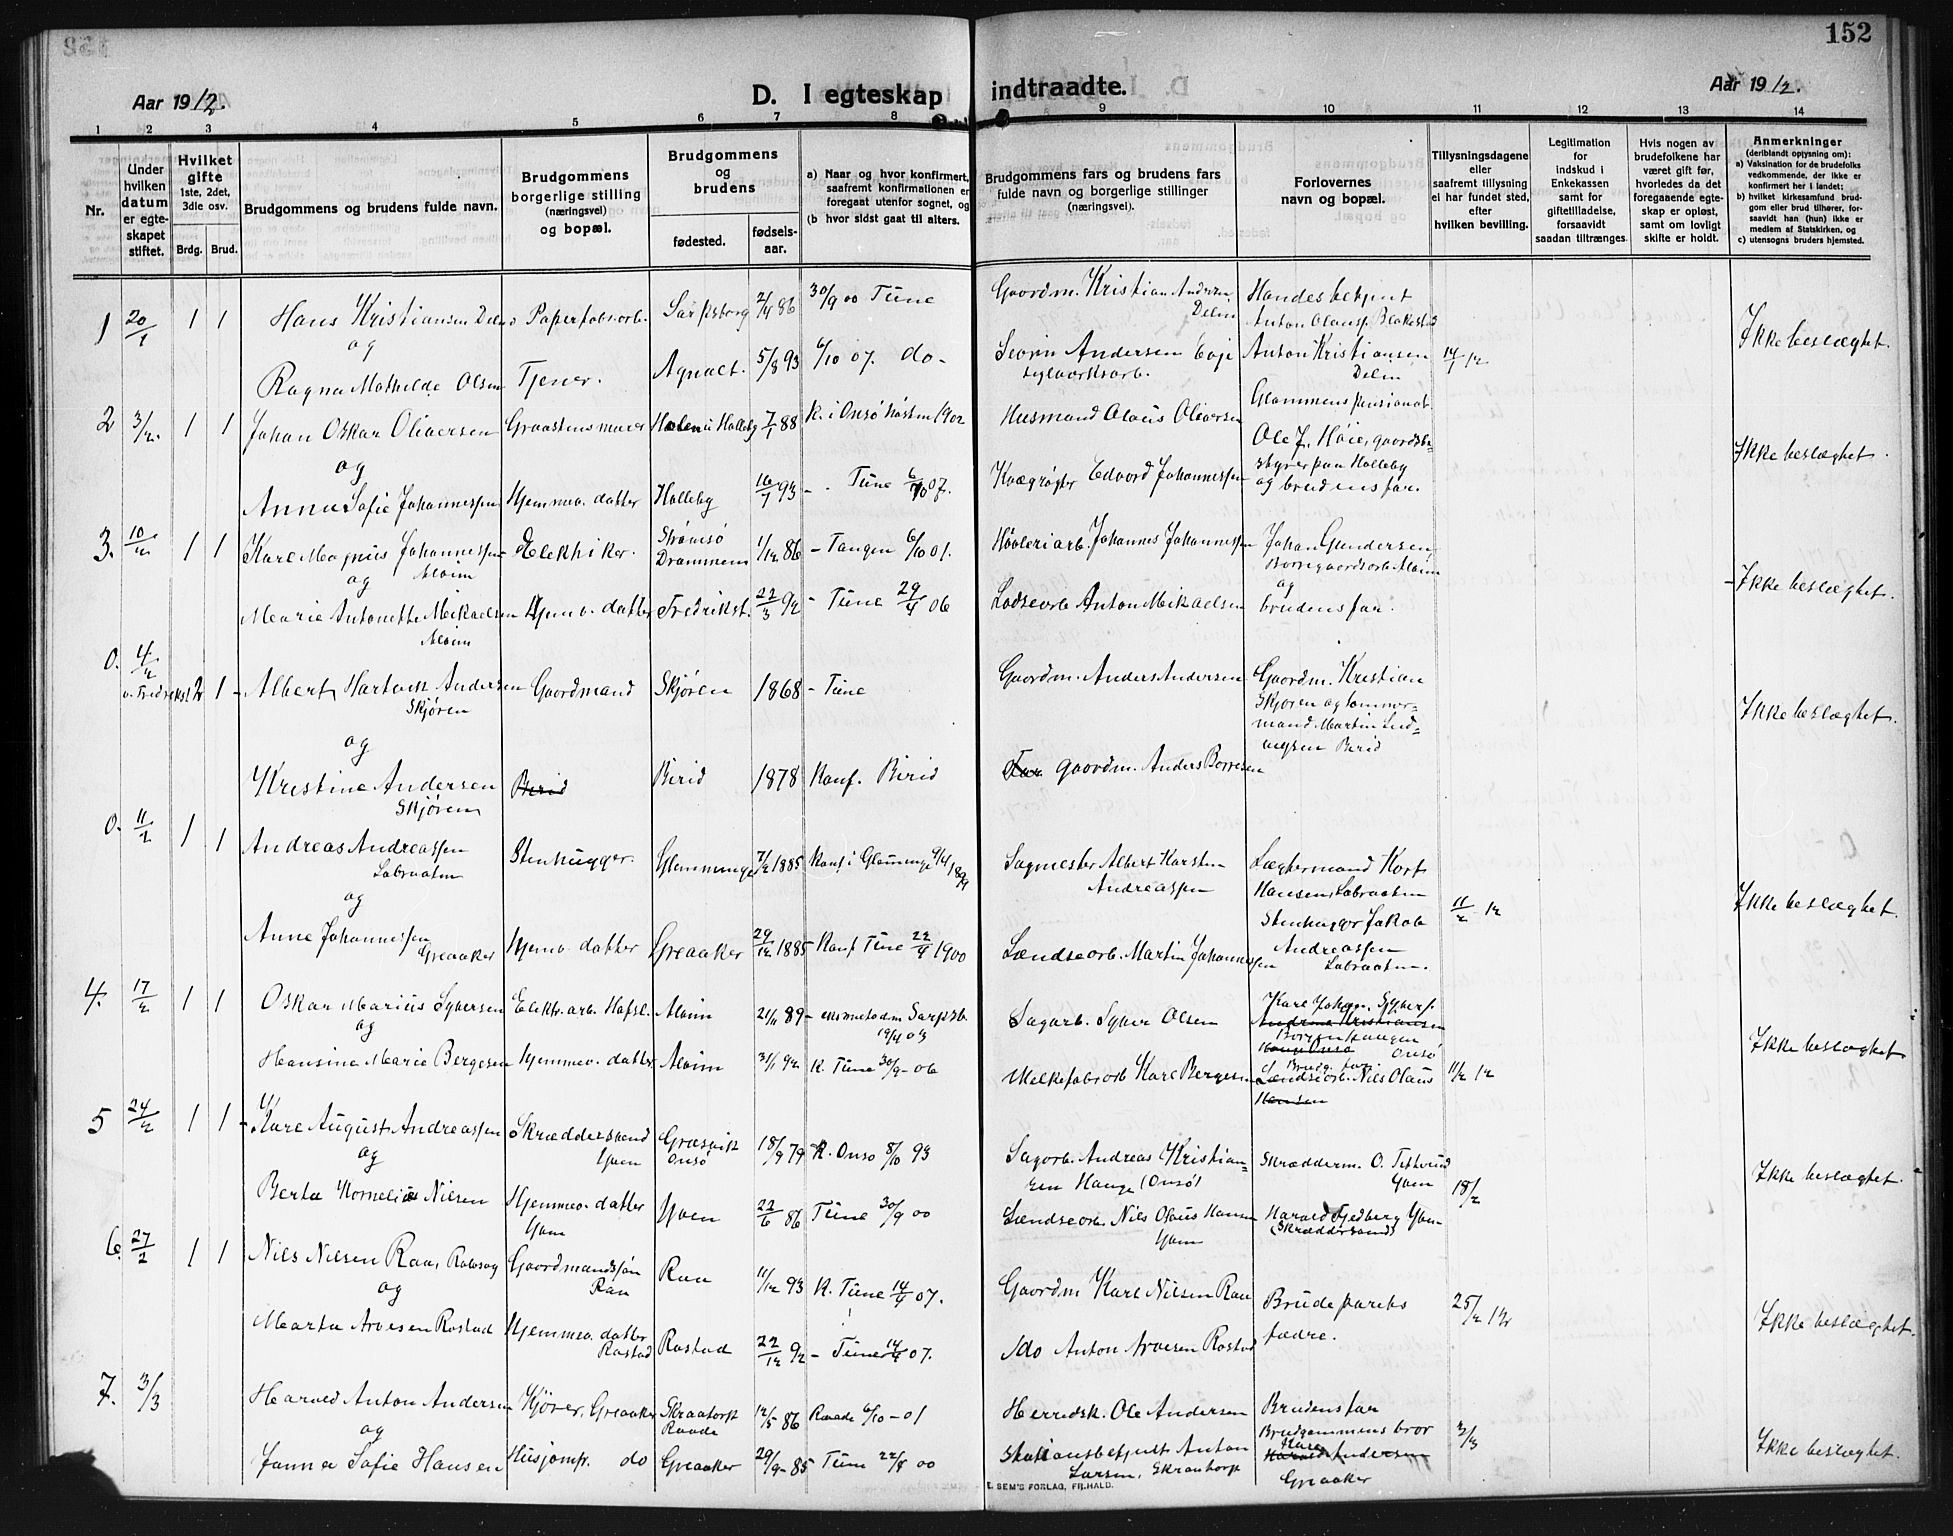 152
Aar 1912.
D. I egteskap indtraadte.
Aar 1912.
1 2 3 4 5 6 7 8 9 10 11 12 13 14
Nr.
Under hvilken datum er egteskapet stiftet.
Hvilket gifte 1ste, 2det, 3dle osv.
Brdg. Brud.
Brudgommens og brudens fulde navn.
Brudgommens borgerlige stilling (næringsvei) og bopæl.
Brudgommens og brudens
fødested. fødselsaar.
a) Naar og hvor konfirmert, saafremt konfirmationen er foregaat utenfor sognet, og
(b hvor sidst gaat til alters.
Brudgommens fars og brudens fars fulde navn og borgerlige stillinger (næringsvei).
Forlovernes navn og bopæl.
Tillysningsdagene eller saafremt tillysning ei har fundet sted, efter hvilken bevilling.
Legitimation for indskud i Enkekassen samt for giftetilladelse, forsaavidt saadan tiltrænges.
Hvis nogen av brudefolkene har været gift før, hvorledes da det foregaaende egteskap er opløst, samt om lovligt skifte er holdt.
Anmerkninger (deriblandt opjysning om):
a) Vaksination for de brudefolks vedkommende, der ikke er konfirmert her i landet;
b) hvilket kirkesamfund brudgom eller brud tilhører, forsaavidt han (hun) ikke er medlem af Statskirken, og
c) utensogns bruders hjemsted.
1 20/1 1 1 Hans Kristiansen Delin Paperfabr.arb. Sarpsborg 2/4 86 30/9 00 Tune Gaardm. Kristian Andersen Delin Handesbetjent Anton Olausp. Blakestad
og
Ragna Mathilde Olsen Tjener. Agnalt. 5/8 93 6/10 07. do- Severin Andersen Eoje Anton Kristiansen Delin 14/1 12 Ikke beslægtet.
2 3/2. 1 1 Johan Oskar Oliversen Graastensmurer Holen i Halleby 7/1 88 K. i Onsø høsten 1902 Husmand Olaus Oliversen Glommens pensionat Ole J. Høie, gaardsbestyrer paa Halleby og brudens far.
og
Anna Sofie Johannessen Hjemmev. datter Halleby 16/7 93 - Tune 6/10 07. Kvægrøgter Edvard Johannessen Ikke beslægtet.
3. 10/2 1 1 Karl Magnus Johannessen Alvim Elektriker. Strømsø Drammen 1/12 86 - Tangen 6/10 01. Høvleriarb. Johannes Johannessen Johan Gundersen, Borregaardsarb. Alvim
og og
Marie Antonette Mikaelsen Alvim Hjemv. datter Fredrikst. 22/3 92 - Tune 29/4 06 Lodsearb. Anton Mikaelsen brudens far. - Ikke beslægtet.
0. 4/2 v. Fredrikst. 2 1 - Albert Hartvik Andersen Skjøren Gaardmand Skjøren 1868 - Tune Gaardm. Anders Andersen Gaardm. Kristian Skjøren og tømmermand Martin Ludvigsen Berid
og
Kristine Andersen Skjøren Berid Birid 1878 Konf. Birid Far Gaardm. Anders Borresen Ikke beslægtet.
0. 11/2 1 1 Andreas Andreassen Labraaten Stenhugger. Glemminge 7/2 1885 Konf i Glemminge 9/4 1899 Sagmester Albert Karsten Andreassen Lægtermand Kort Hansen, Labraaten
og
Anne Johannessen Greaaker Hjemv. datter Greaaker 29/12 1885 Konf Tune 22/4 1900 Lændsearb. Martin Johannessen Stenhugger Jakob Andreassen Labraaten. 11/2 12 Ikke beslægtet.
4. 17/2 1 1 Oskar Marius Syversen Elektr. arb. Hafsl. Alvim 21/11 89 - Sarpsb. 19/4 03 Sagarb. Syver Olsen Karl Johan Syvers. Andreas Kristiansen Borgenhaugen Hauge Onsø Onsø
og
Hansine Marie Bergesen Hjemmev. datter Alvim 31/1 92 K. Tune 30/9-06 Melkefabrarb Karl Bergesen Brudg. far Lændsearb. Nils Olaus Hansen 11/2 12 Ikke beslægtet
5 24/2 1 1 - Karl August Andreassen Skræddersvend Yven Græsvik Onsø 18/9 79 K. Onsø 8/10 93 Sagarb. Andreas Kristiansen Hauge (Onsø) Skrædderm. O. Tetterud Yven
og
Berta Kornelia Nilsen Hjemmev. datter Yven Yven 22/6 86 Tune 30/9 00 Lændsearb. Nils Olaus Hansen Yven Harald Fjedberg Yven (Skræddersvend) 18/2 Ikke beslægtet.
6. 27/2 1 1 Nils Nilsen Raa, Rolvsøy Gaardmandssøn Raa Raa 11/12 93 K. Tune 14/4 07. Gaardm Karl Nilsen Raa Brudeparets fædre. 25/2 12
og
Marta Arvesen Rostad Hjemmev. datter Rostad Rostad 22/12 92 - Tune 14/4 07. do Anton Arvesen Rostad Ikke beslægtet.
7. 3/3 Harald Anton Andersen Kjører, Greaaker Skraatorp Raade 12/5 86 Raade 6/10-01 Herredsk. Ole Andersen Brudens far Brudgommens bror Karl Harald Andersen Greaaker 3/3
og
Janna Sofie Hansen Husjomfr. do Greaaker 29/9-85 Tune 22/4 00 Stationsbetjent Anton Larsen, Skraatorp Ikke beslægtet.
E. SEM'S FORLAG, FR.HALD.